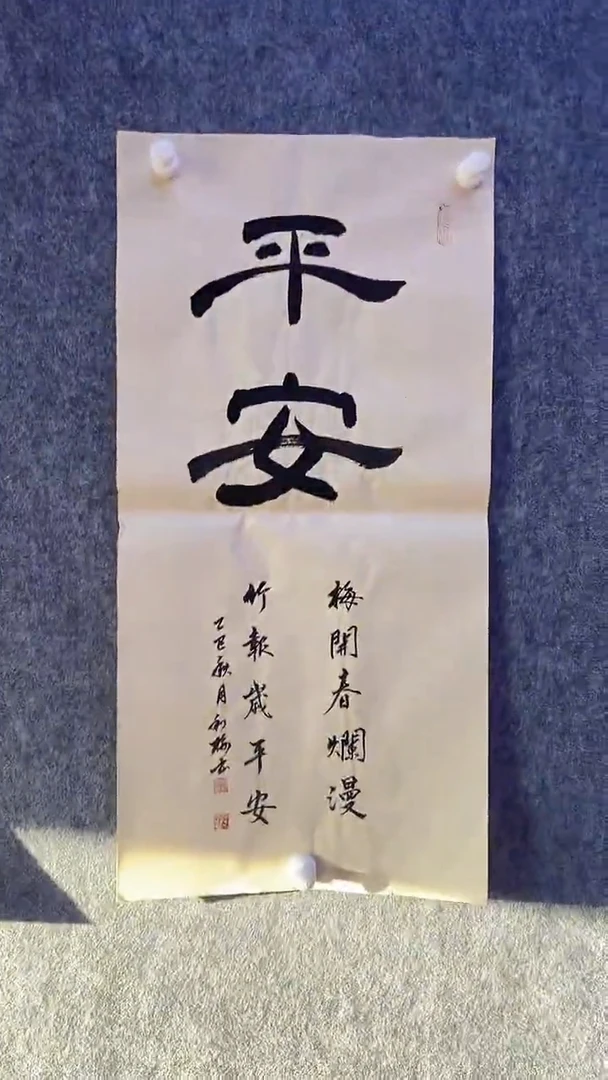 平安
梅開春爛漫
竹報歲平安
乙巳秋月利梅書